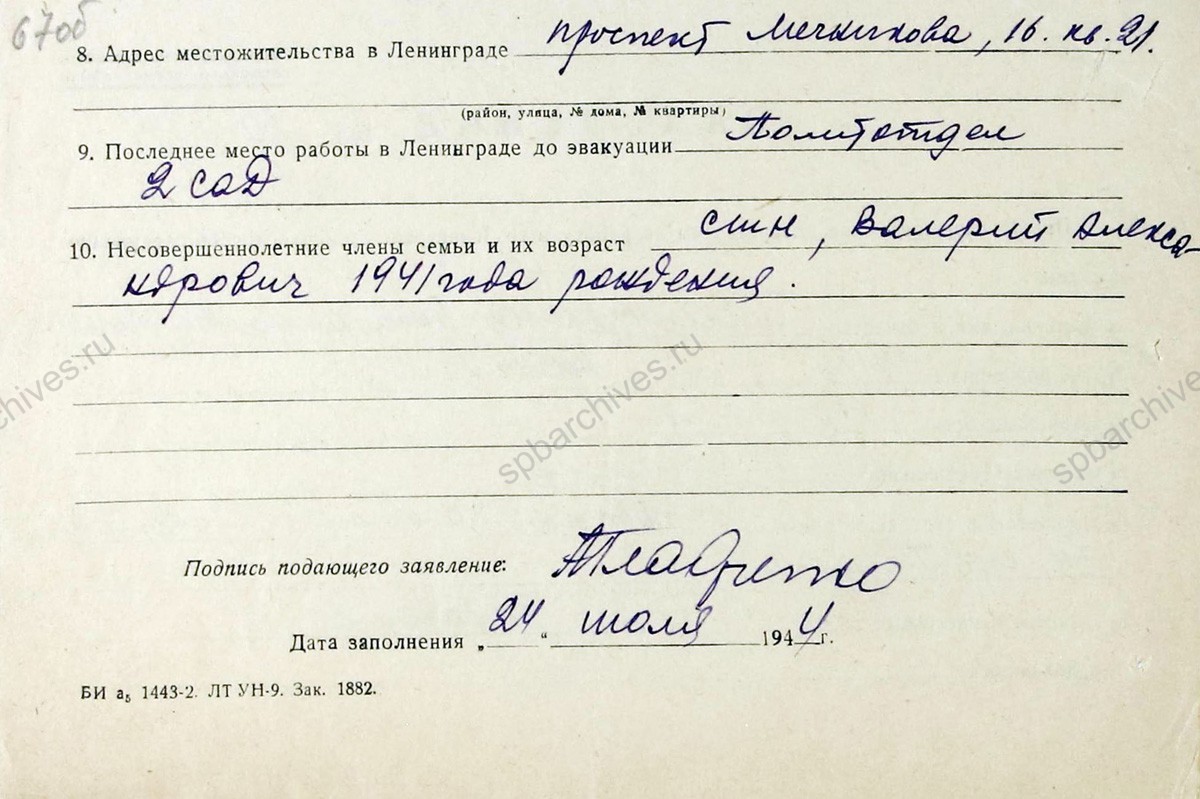 67об
8. Адрес местожительства в Ленинграде проспект Мечникова, 16. кв. 21.
(район, улица, № дома, № квартиры)
9. Последнее место работы в Ленинграде до эвакуации Политотдел
2 сад
10. Несовершеннолетние члены семьи и их возраст сын, Валерий Алекса-
ндрович 1941 года рождения.
chives.ru
spbarchives.ru
spbarchive
Подпись подающего заявление:
Дата заполнения „24“ июля 1944 г.
БИ а₅ 1443-2. ЛТ УН-9. Зак. 1882.